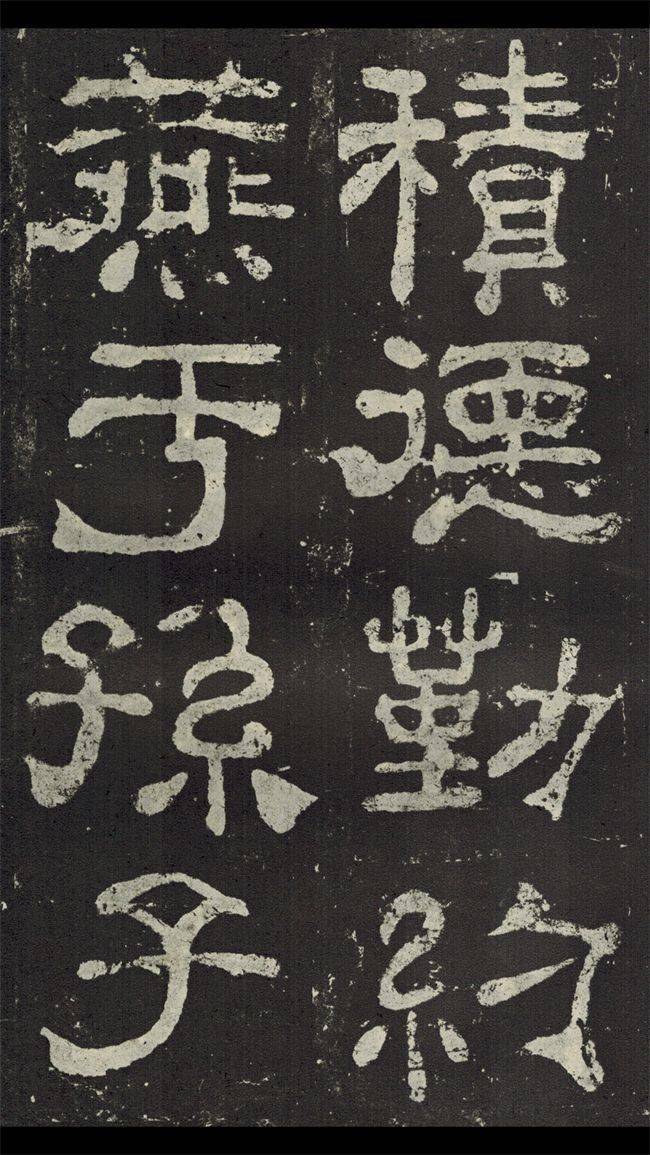 積德勤約
燕于孫子